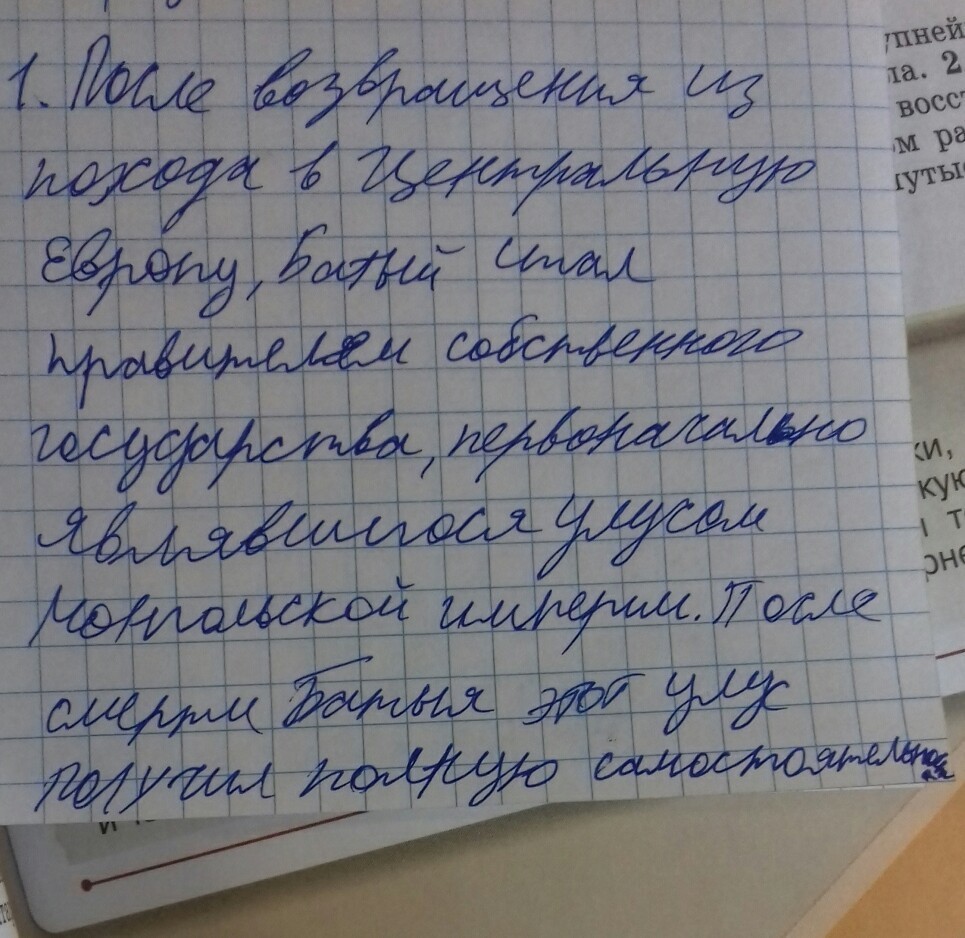 1. После возвращения из
похода в Центральную
Европу, Батый стал
правителем собственного
государства, первоначально
являвшегося улусом
Монгольской империи. После
смерти Батыя этот улус
получил полную самостоятельность
упней
ла. 2
восст
м ра
путы
ки,
кую
т
рне